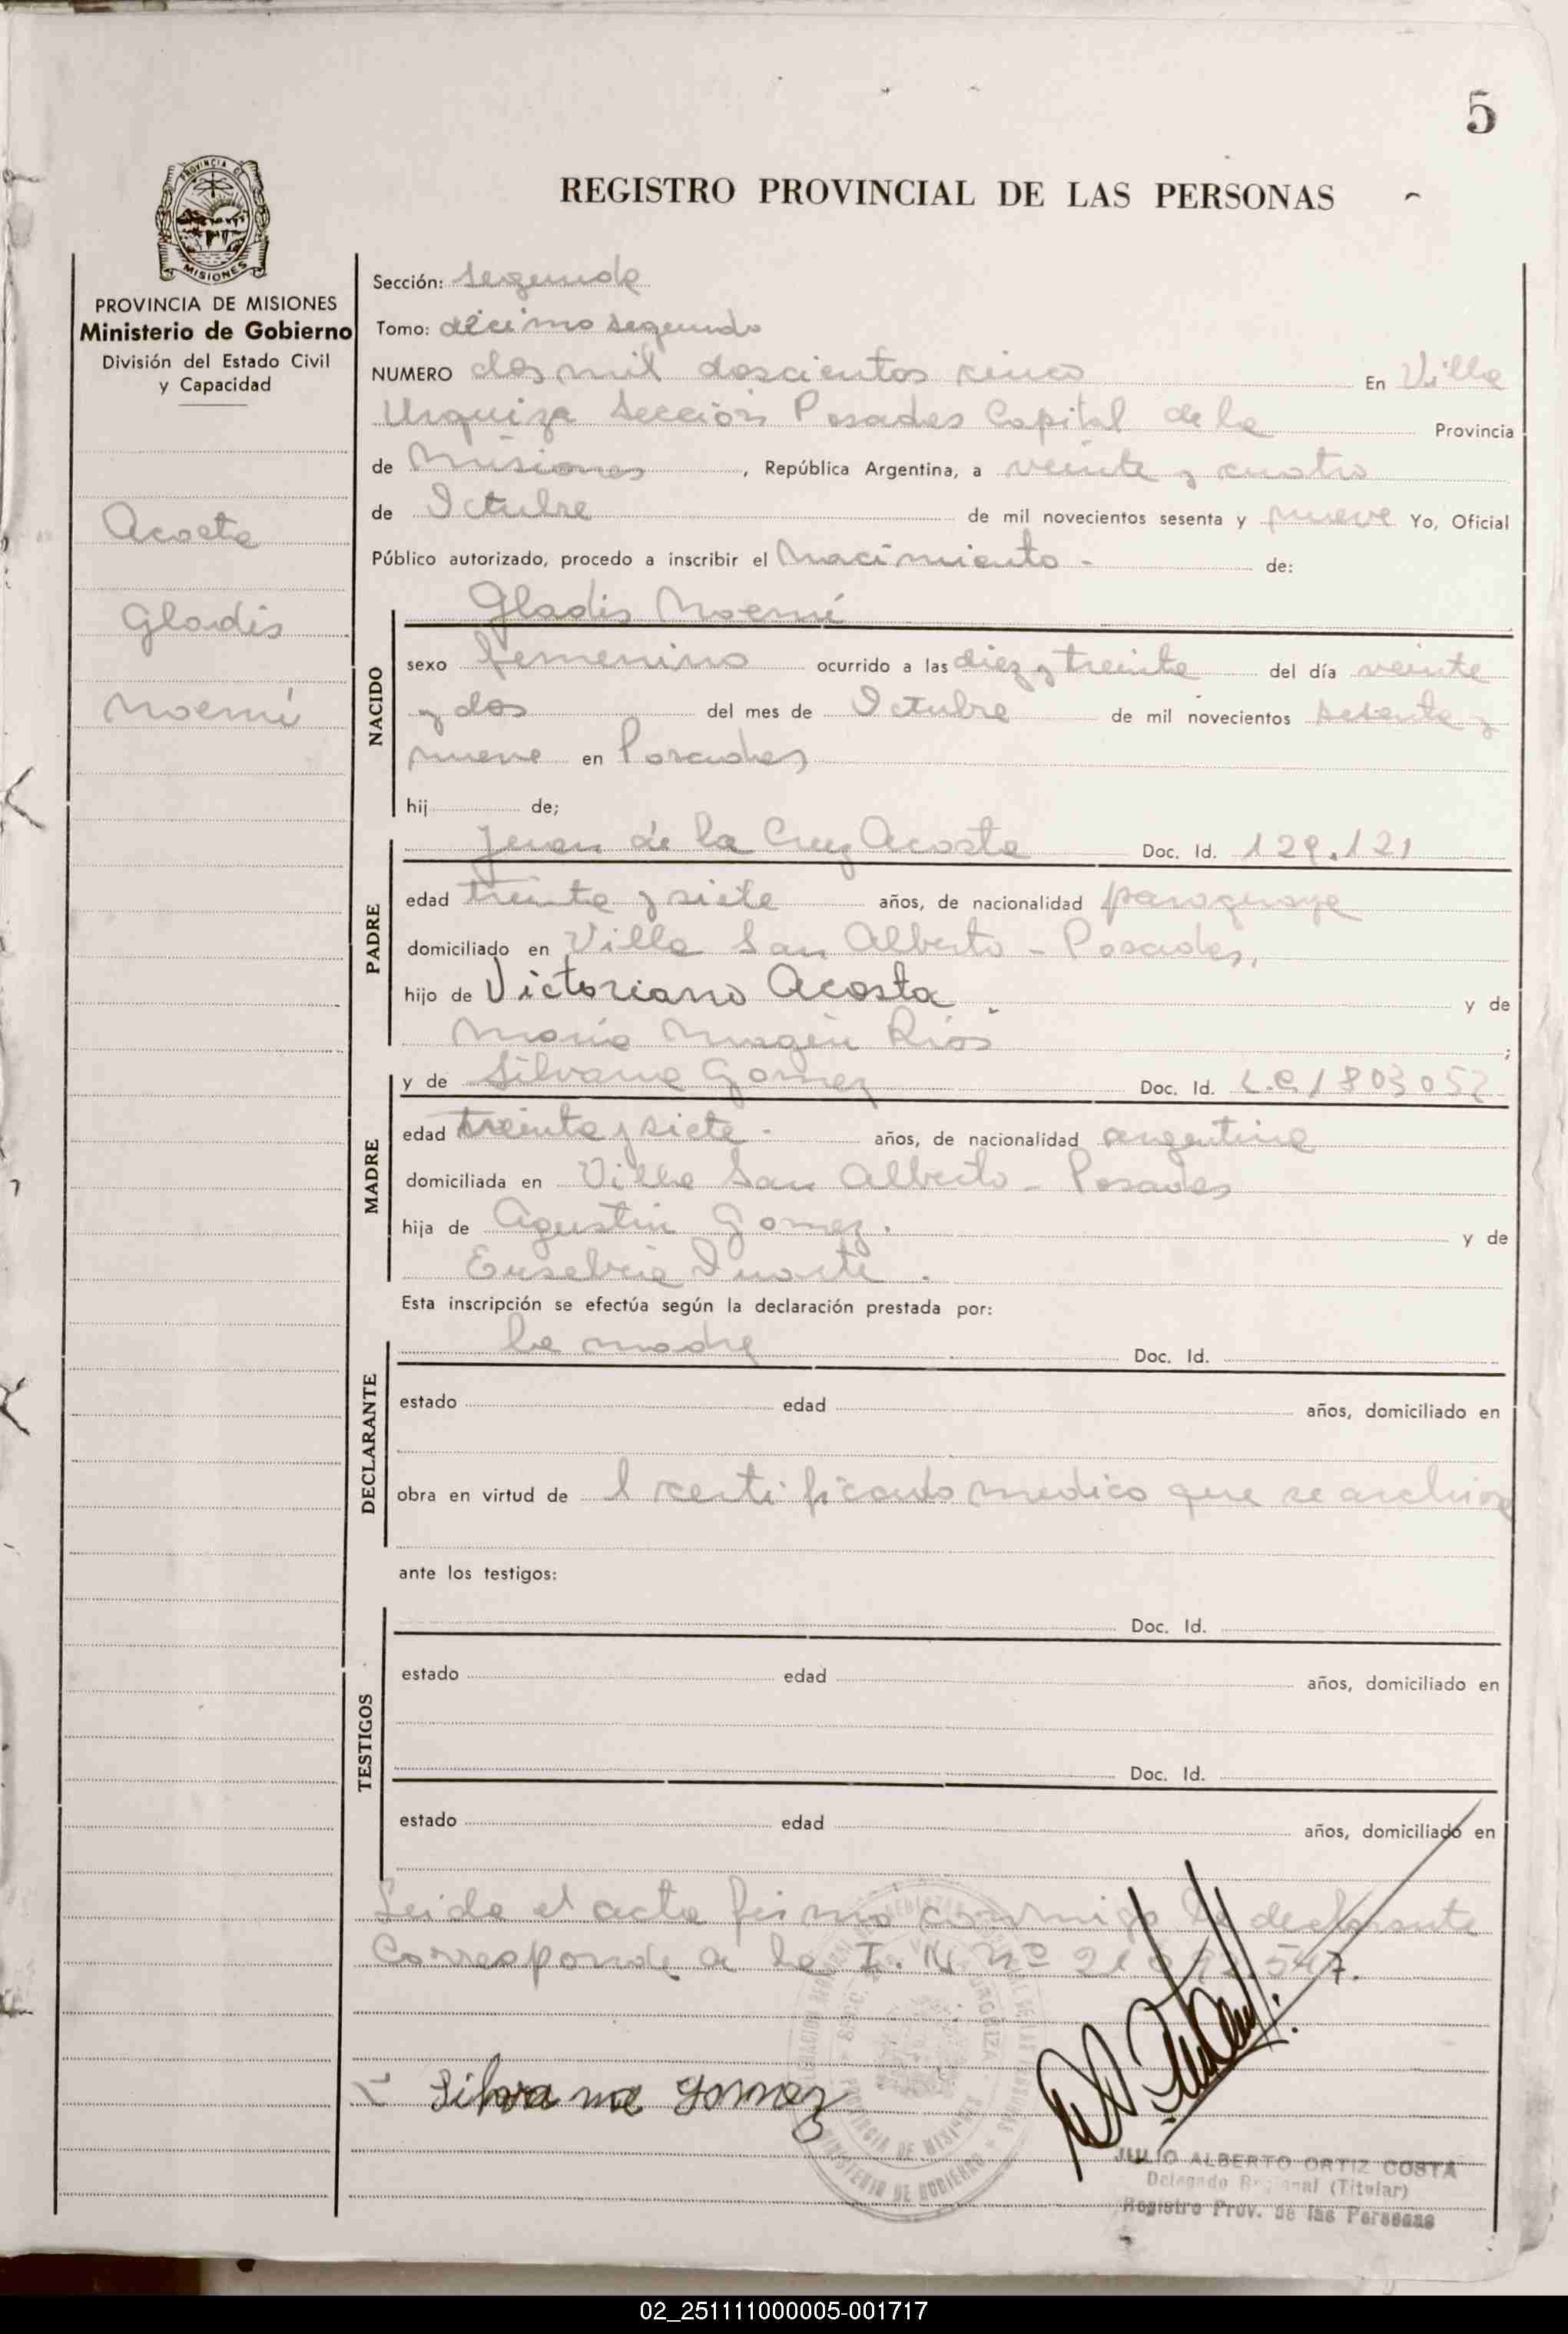 5
REGISTRO PROVINCIAL DE LAS PERSONAS
PROVINCIA DE MISIONES
Ministerio de Gobierno
División del Estado Civil
y Capacidad
Acosta
Gladis
Noemí
Sección: segunda
Tomo: décimo segundo
NUMERO dos mil doscientos cinco En Villa
Urquiza Sección Posadas Capital de la Provincia
de Misiones, República Argentina, a veinte y cuatro
de Octubre de mil novecientos sesenta y nueve Yo, Oficial
Público autorizado, procedo a inscribir el Nacimiento - de:
NACIDO
Gladis Noemí
sexo femenino ocurrido a las diez y treinta del día veinte
y dos del mes de Octubre de mil novecientos sesenta y
nueve en Posadas
hij de;
PADRE
Juan de la Cruz Acosta Doc. Id. 129.121
edad treinta y siete años, de nacionalidad paraguaya
domiciliado en Villa San Alberto - Posadas,
hijo de Victoriano Acosta. y de
María Ríos ;
MADRE
y de Silvana Gomez Doc. Id. L.C.1803052
edad treinta y siete - años, de nacionalidad argentina
domiciliada en Villa San Alberto - Posadas
hija de Agustin Gomez. y de
Eusebia Duarte.
Esta inscripción se efectúa según la declaración prestada por:
DECLARANTE
la madre Doc. Id.
estado edad años, domiciliado en
obra en virtud de l certificado medico que se archiva
ante los testigos:
TESTIGOS
Doc. Id.
estado edad años, domiciliado en
Doc. Id.
estado edad años, domiciliado en
Leida el acta firma conmigo la declarante
Corresponde a la I. N nº
Silvana Gomez
PROVINCIA DE MISIONES
MINISTERIO DE GOBIERNO
JULIO ALBERTO ORTIZ COSTA
Delegado Regional (Titular)
Registro Prov. de las Personas
02_251111000005-001717